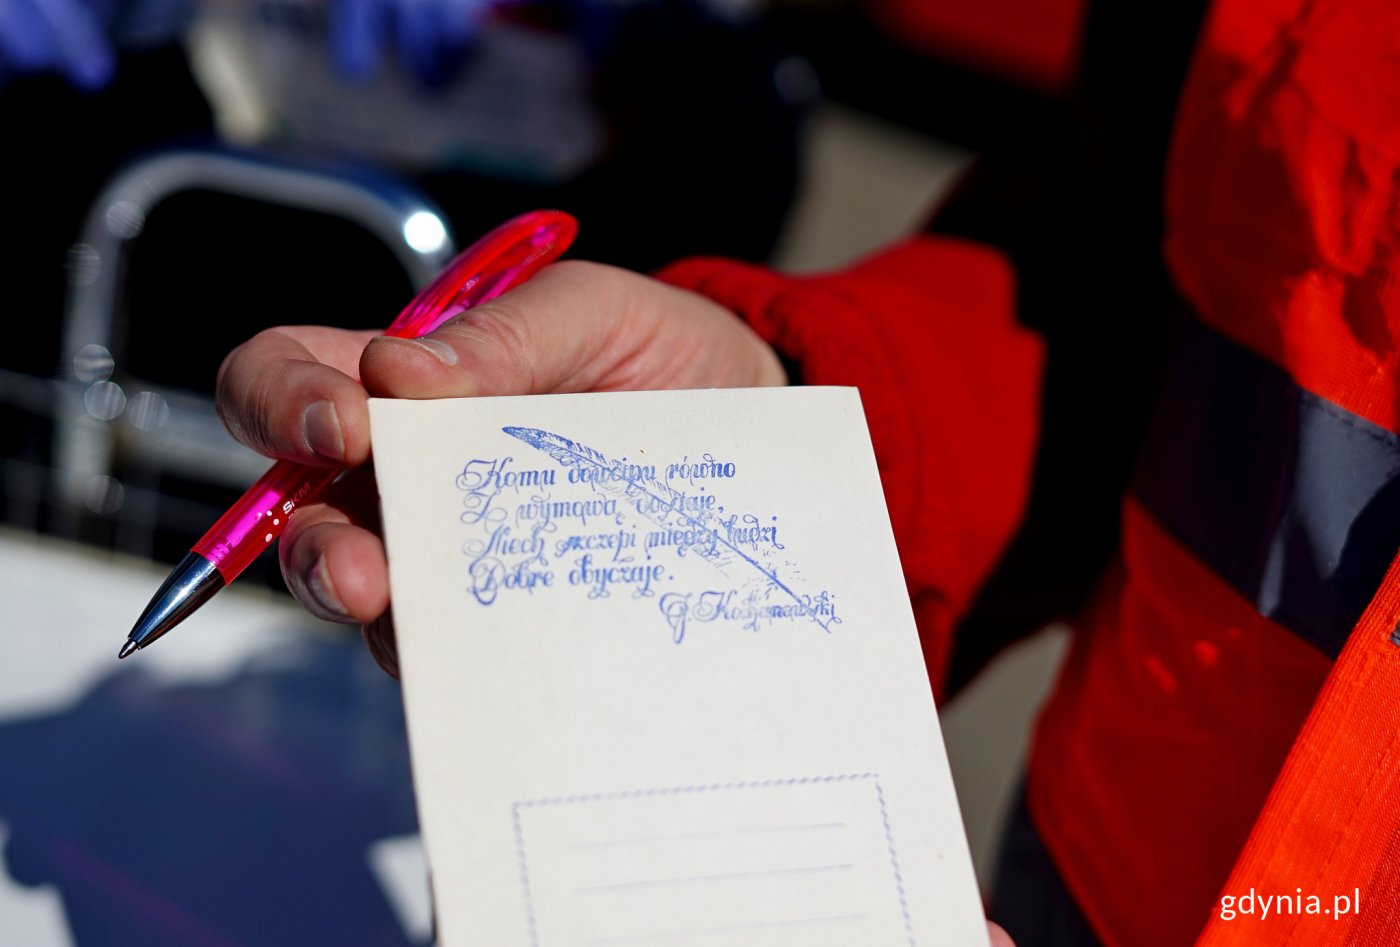 Komu dowcipu równo
Z wymową dostaje,
Niech szczepi między ludzi
Dobre obyczaje.
J. Kochanowski
SKM
gdynia.pl